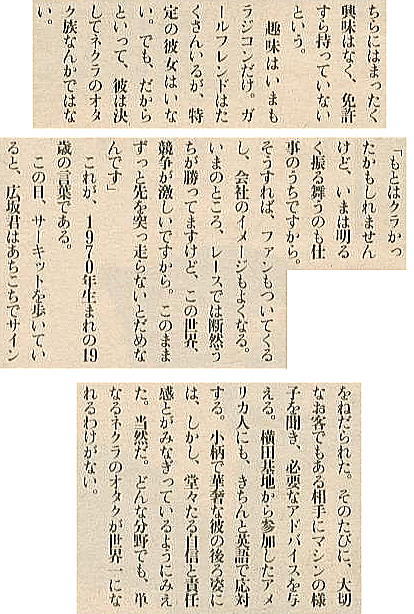 ちらにはまったく
興味はなく、免許
すら持っていない
という。
　趣味はいまも
ラジコンだけ。ガ
ールフレンドはた
くさんいるが、特
定の彼女はいな
い。でも、だから
といって、彼は決
してネクラのオタ
ク族なんかではな
い。
「もとはクラかっ
たかもしれません
けど、いまは明る
く振る舞うのも仕
事のうちですから。
そうすれば、ファンもついてくる
し、会社のイメージもよくなる。
いまのところ、レースでは断然う
ちが勝ってますけど、この世界、
競争が激しいですから。このまま
ずっと先を突っ走らないとだめな
んです」
　これが、1970年生まれの19
歳の言葉である。
　この日、サーキットを歩いてい
ると、広坂君はあちこちでサイン
をねだられた。そのたびに、大切
なお客でもある相手にマシンの様
子を聞き、必要なアドバイスを与
える。横田基地から参加したアメ
リカ人にも、きちんと英語で応対
する。小柄で華奢な彼の後ろ姿に
は、しかし、堂々たる自信と責任
感とがみなぎっているようにみえ
た。当然だ。どんな分野でも、単
なるネクラのオタクが世界一にな
れるわけがない。